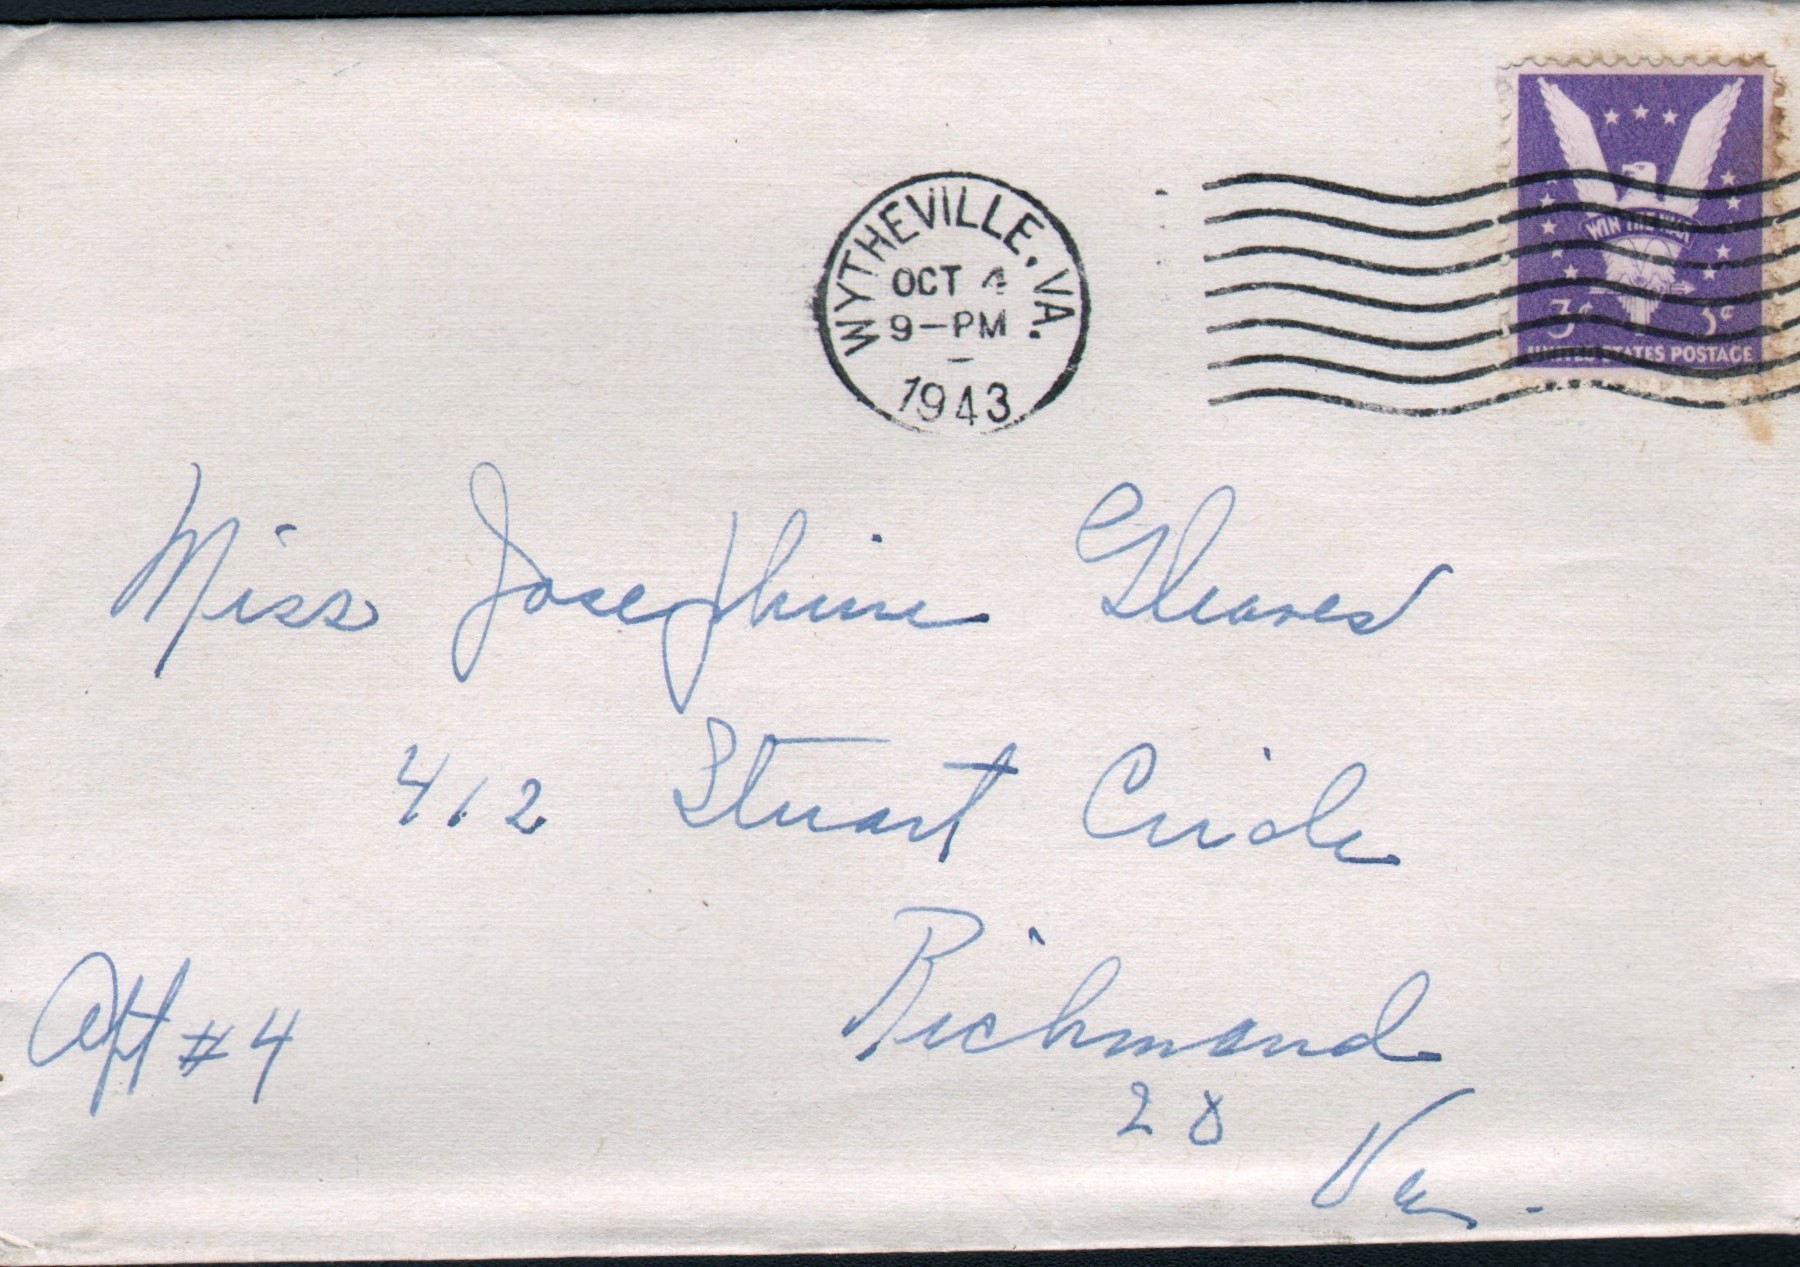 WYTHEVILLE, VA.
OCT 4
9-PM
1943
WIN THE WAR
3¢ 3¢
UNITED STATES POSTAGE
Miss Josephine Gleaves
412 Stuart Circle
Apt #4
Richmond
20
Va.